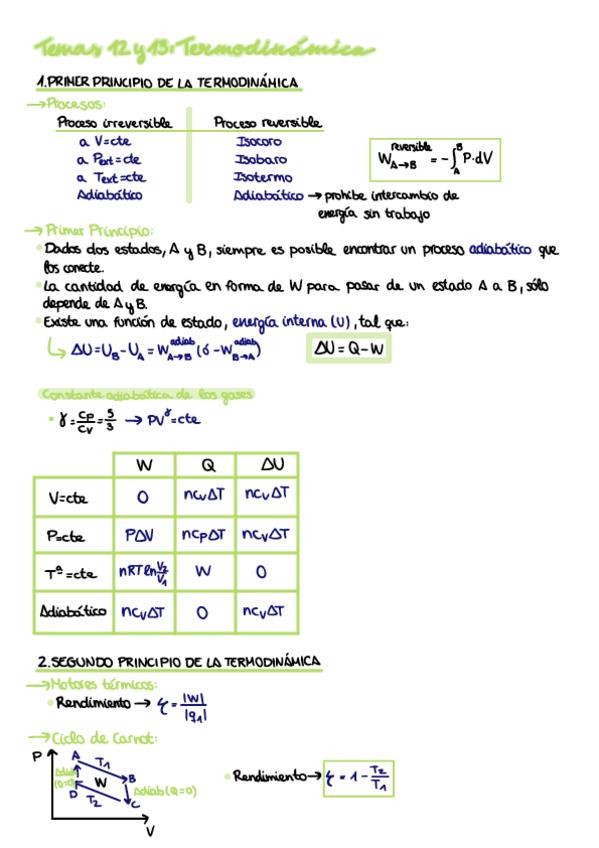 Temas 12 y 13: Termodinámica
1. PRIMER PRINCIPIO DE LA TERMODINÁMICA
→ Procesos:
Proceso irreversible Proceso reversible
a V=cte Isocoro
a Pext=cte Isobaro
a Text=cte Isotermo
Adiabático Adiabático → prohíbe intercambio de
energía sin trabajo
W_{A→B}^{reversible} = -∫_A^B P·dV
→ Primer Principio:
• Dados dos estados, A y B, siempre es posible encontrar un proceso adiabático que
los conecte.
• La cantidad de energía en forma de W para pasar de un estado A a B, sólo
depende de A y B.
• Existe una función de estado, energía interna (U), tal que:
↳ ΔU = U_B - U_A = W_{A→B}^{adiab} (ó -W_{B→A}^{adiab}) ΔU = Q - W
Constante adiabática de los gases
• γ = Cp/Cv = 5/3 → PV^γ = cte
W Q ΔU
V=cte 0 ncvΔT ncvΔT
P=cte PΔV ncpΔT ncvΔT
Tª=cte nRT ln V2/V1 W 0
Adiabático ncvΔT 0 ncvΔT
2. SEGUNDO PRINCIPIO DE LA TERMODINÁMICA
→ Motores térmicos:
• Rendimiento → ξ = |W|/|q1|
→ Ciclo de Carnot:
P
A T1
Adiab (Q=0) W B
D T2 C Adiab (Q=0)
V
• Rendimiento → ξ = 1 - T2/T1